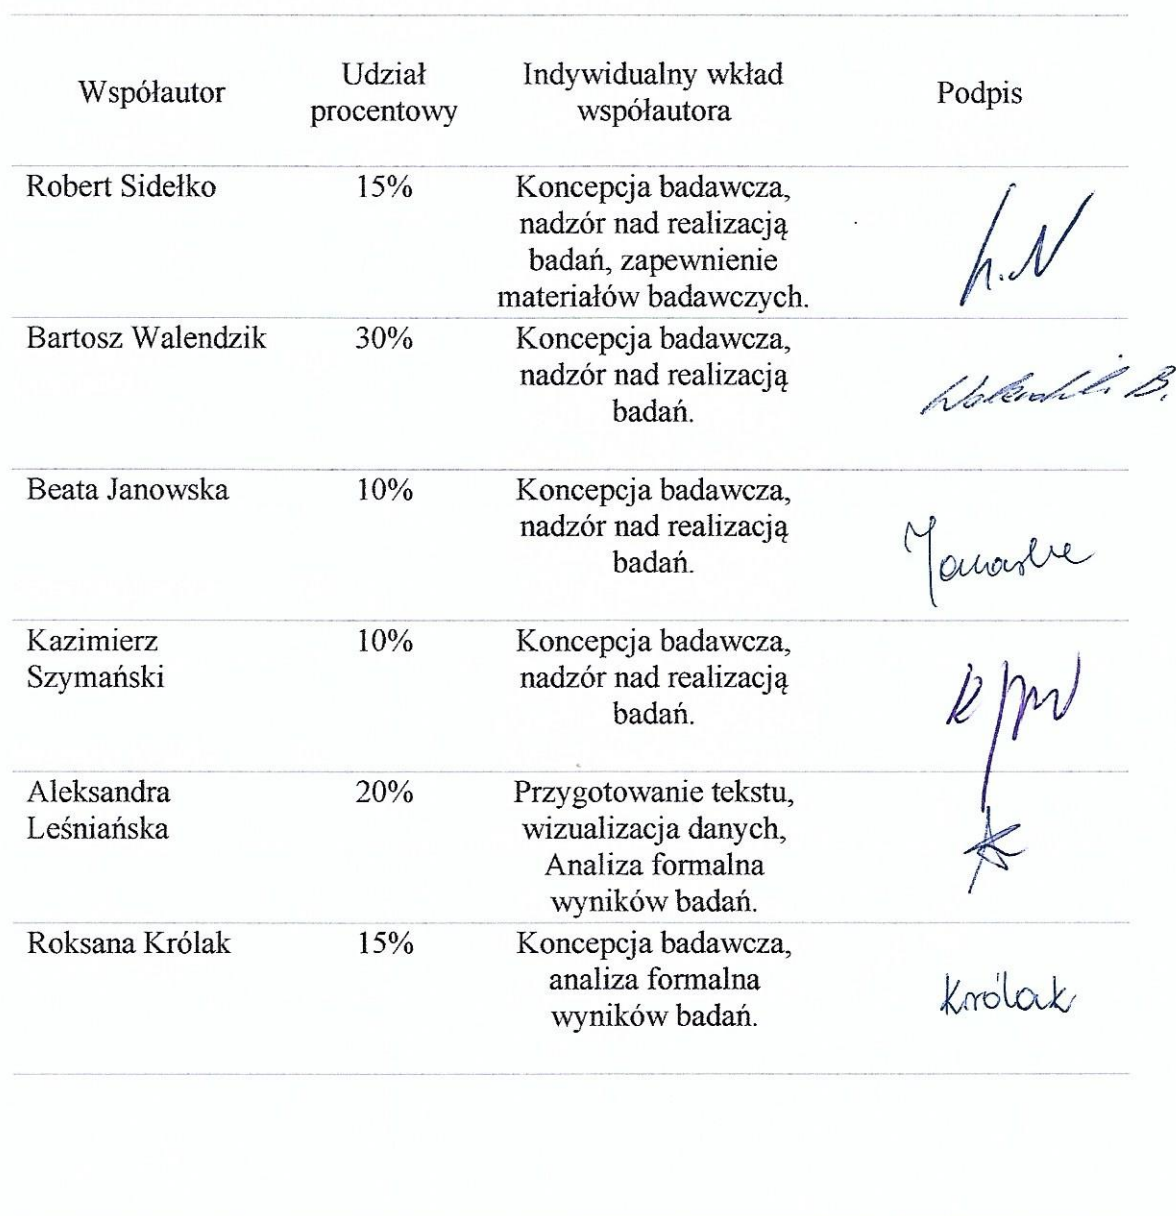 Współautor
Udział
procentowy
Indywidualny wkład
współautora
Podpis
Robert Sidełko
15%
Koncepcja badawcza,
nadzór nad realizacją
badań, zapewnienie
materiałów badawczych.
Bartosz Walendzik
30%
Koncepcja badawcza,
nadzór nad realizacją
badań.
Walendzik B.
Beata Janowska
10%
Koncepcja badawcza,
nadzór nad realizacją
badań.
Janowska
Kazimierz
Szymański
10%
Koncepcja badawcza,
nadzór nad realizacją
badań.
Aleksandra
Leśniańska
20%
Przygotowanie tekstu,
wizualizacja danych,
Analiza formalna
wyników badań.
Roksana Królak
15%
Koncepcja badawcza,
analiza formalna
wyników badań.
Królak